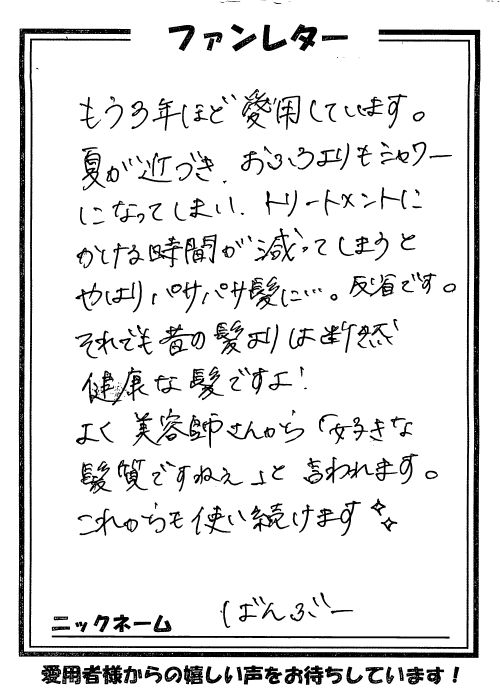 ファンレター
もう3年ほど愛用しています。
夏が近づき、おふろよりもシャワー
になってしまい、トリートメントに
かける時間が減ってしまうと
やはりパサパサ髪に…。反省です。
それでも昔の髪よりは断然
健康な髪ですよ!
よく美容師さんから「好きな
髪質ですねぇ」と言われます。
これからも使い続けます
ニックネーム ばんぶー
愛用者様からの嬉しい声をお待ちしています!